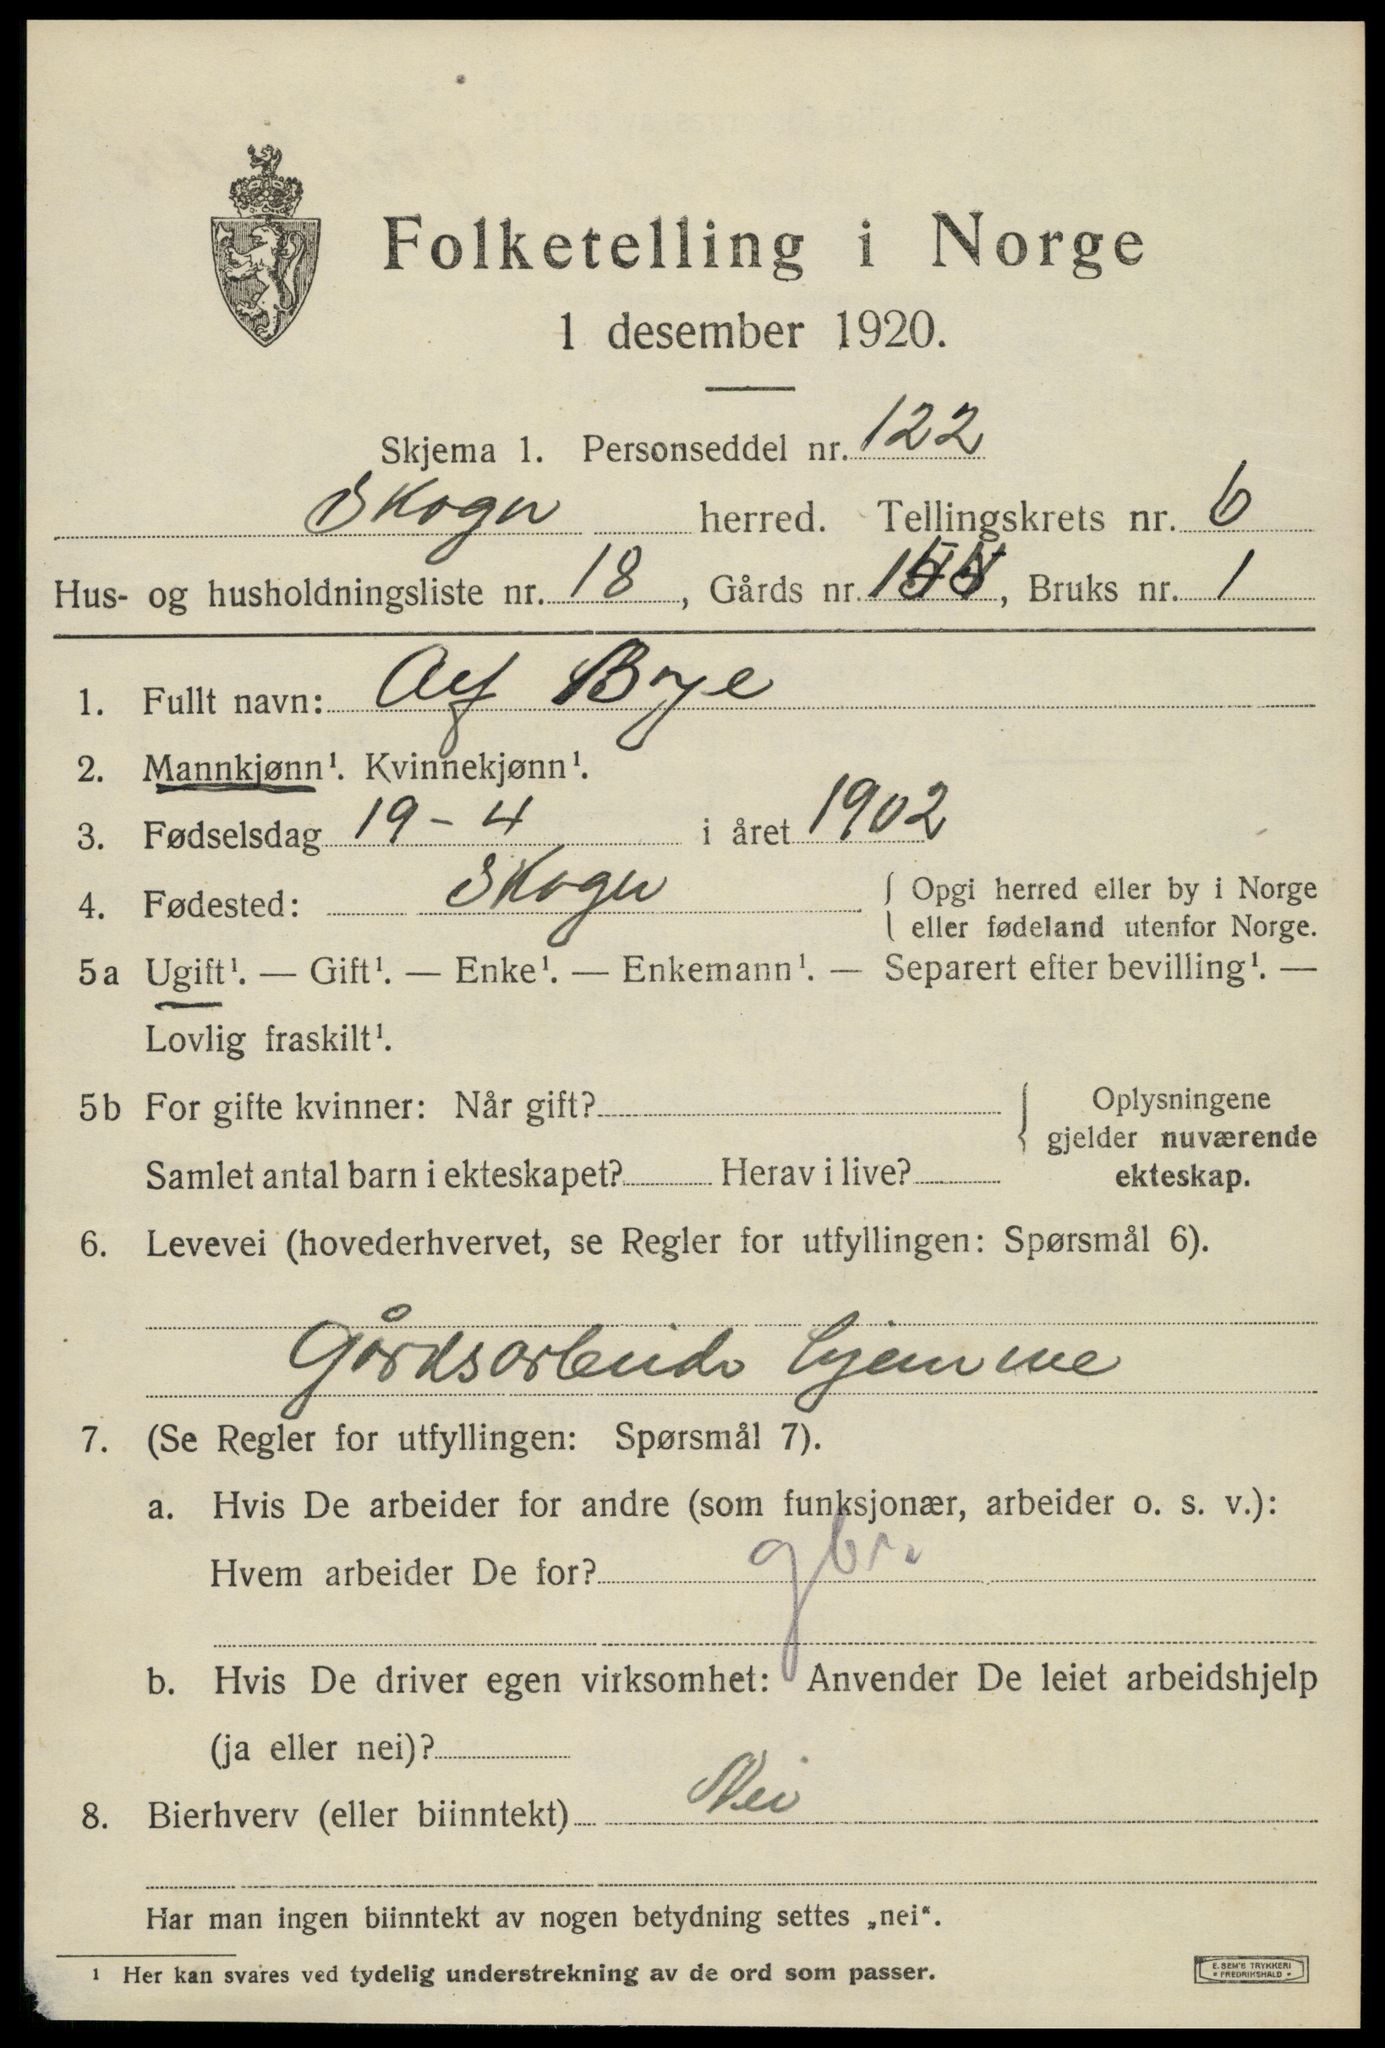 Folketelling i Norge
1 desember 1920.
Skjema 1. Personseddel nr. 122
Skoger herred. Tellingskrets nr. 6
Hus- og husholdningsliste nr. 18, Gårds nr. , Bruks nr. 1
1. Fullt navn: Alf Brye
2. Mannkjønn¹. Kvinnekjønn¹.
3. Fødselsdag 19-4 i året 1902
4. Fødested: Skoger { Opgi herred eller by i Norge
eller fødeland utenfor Norge.
5a Ugift¹. — Gift¹. — Enke¹. — Enkemann¹. — Separert efter bevilling¹. —
Lovlig fraskilt¹.
5b For gifte kvinner: Når gift? { Oplysningene
gjelder nuværende
Samlet antal barn i ekteskapet? Herav i live? ekteskap.
6. Levevei (hovederhvervet, se Regler for utfyllingen: Spørsmål 6).
Gårdsarbeide hjemme
7. (Se Regler for utfyllingen: Spørsmål 7).
a. Hvis De arbeider for andre (som funksjonær, arbeider o. s. v.):
Hvem arbeider De for? gbr.
b. Hvis De driver egen virksomhet: Anvender De leiet arbeidshjelp
(ja eller nei)?
8. Bierhverv (eller biinntekt) Nei
Har man ingen biinntekt av nogen betydning settes „nei“.
¹ Her kan svares ved tydelig understrekning av de ord som passer.
E. SEM'S TRYKKERI
* FREDRIKSHALD *